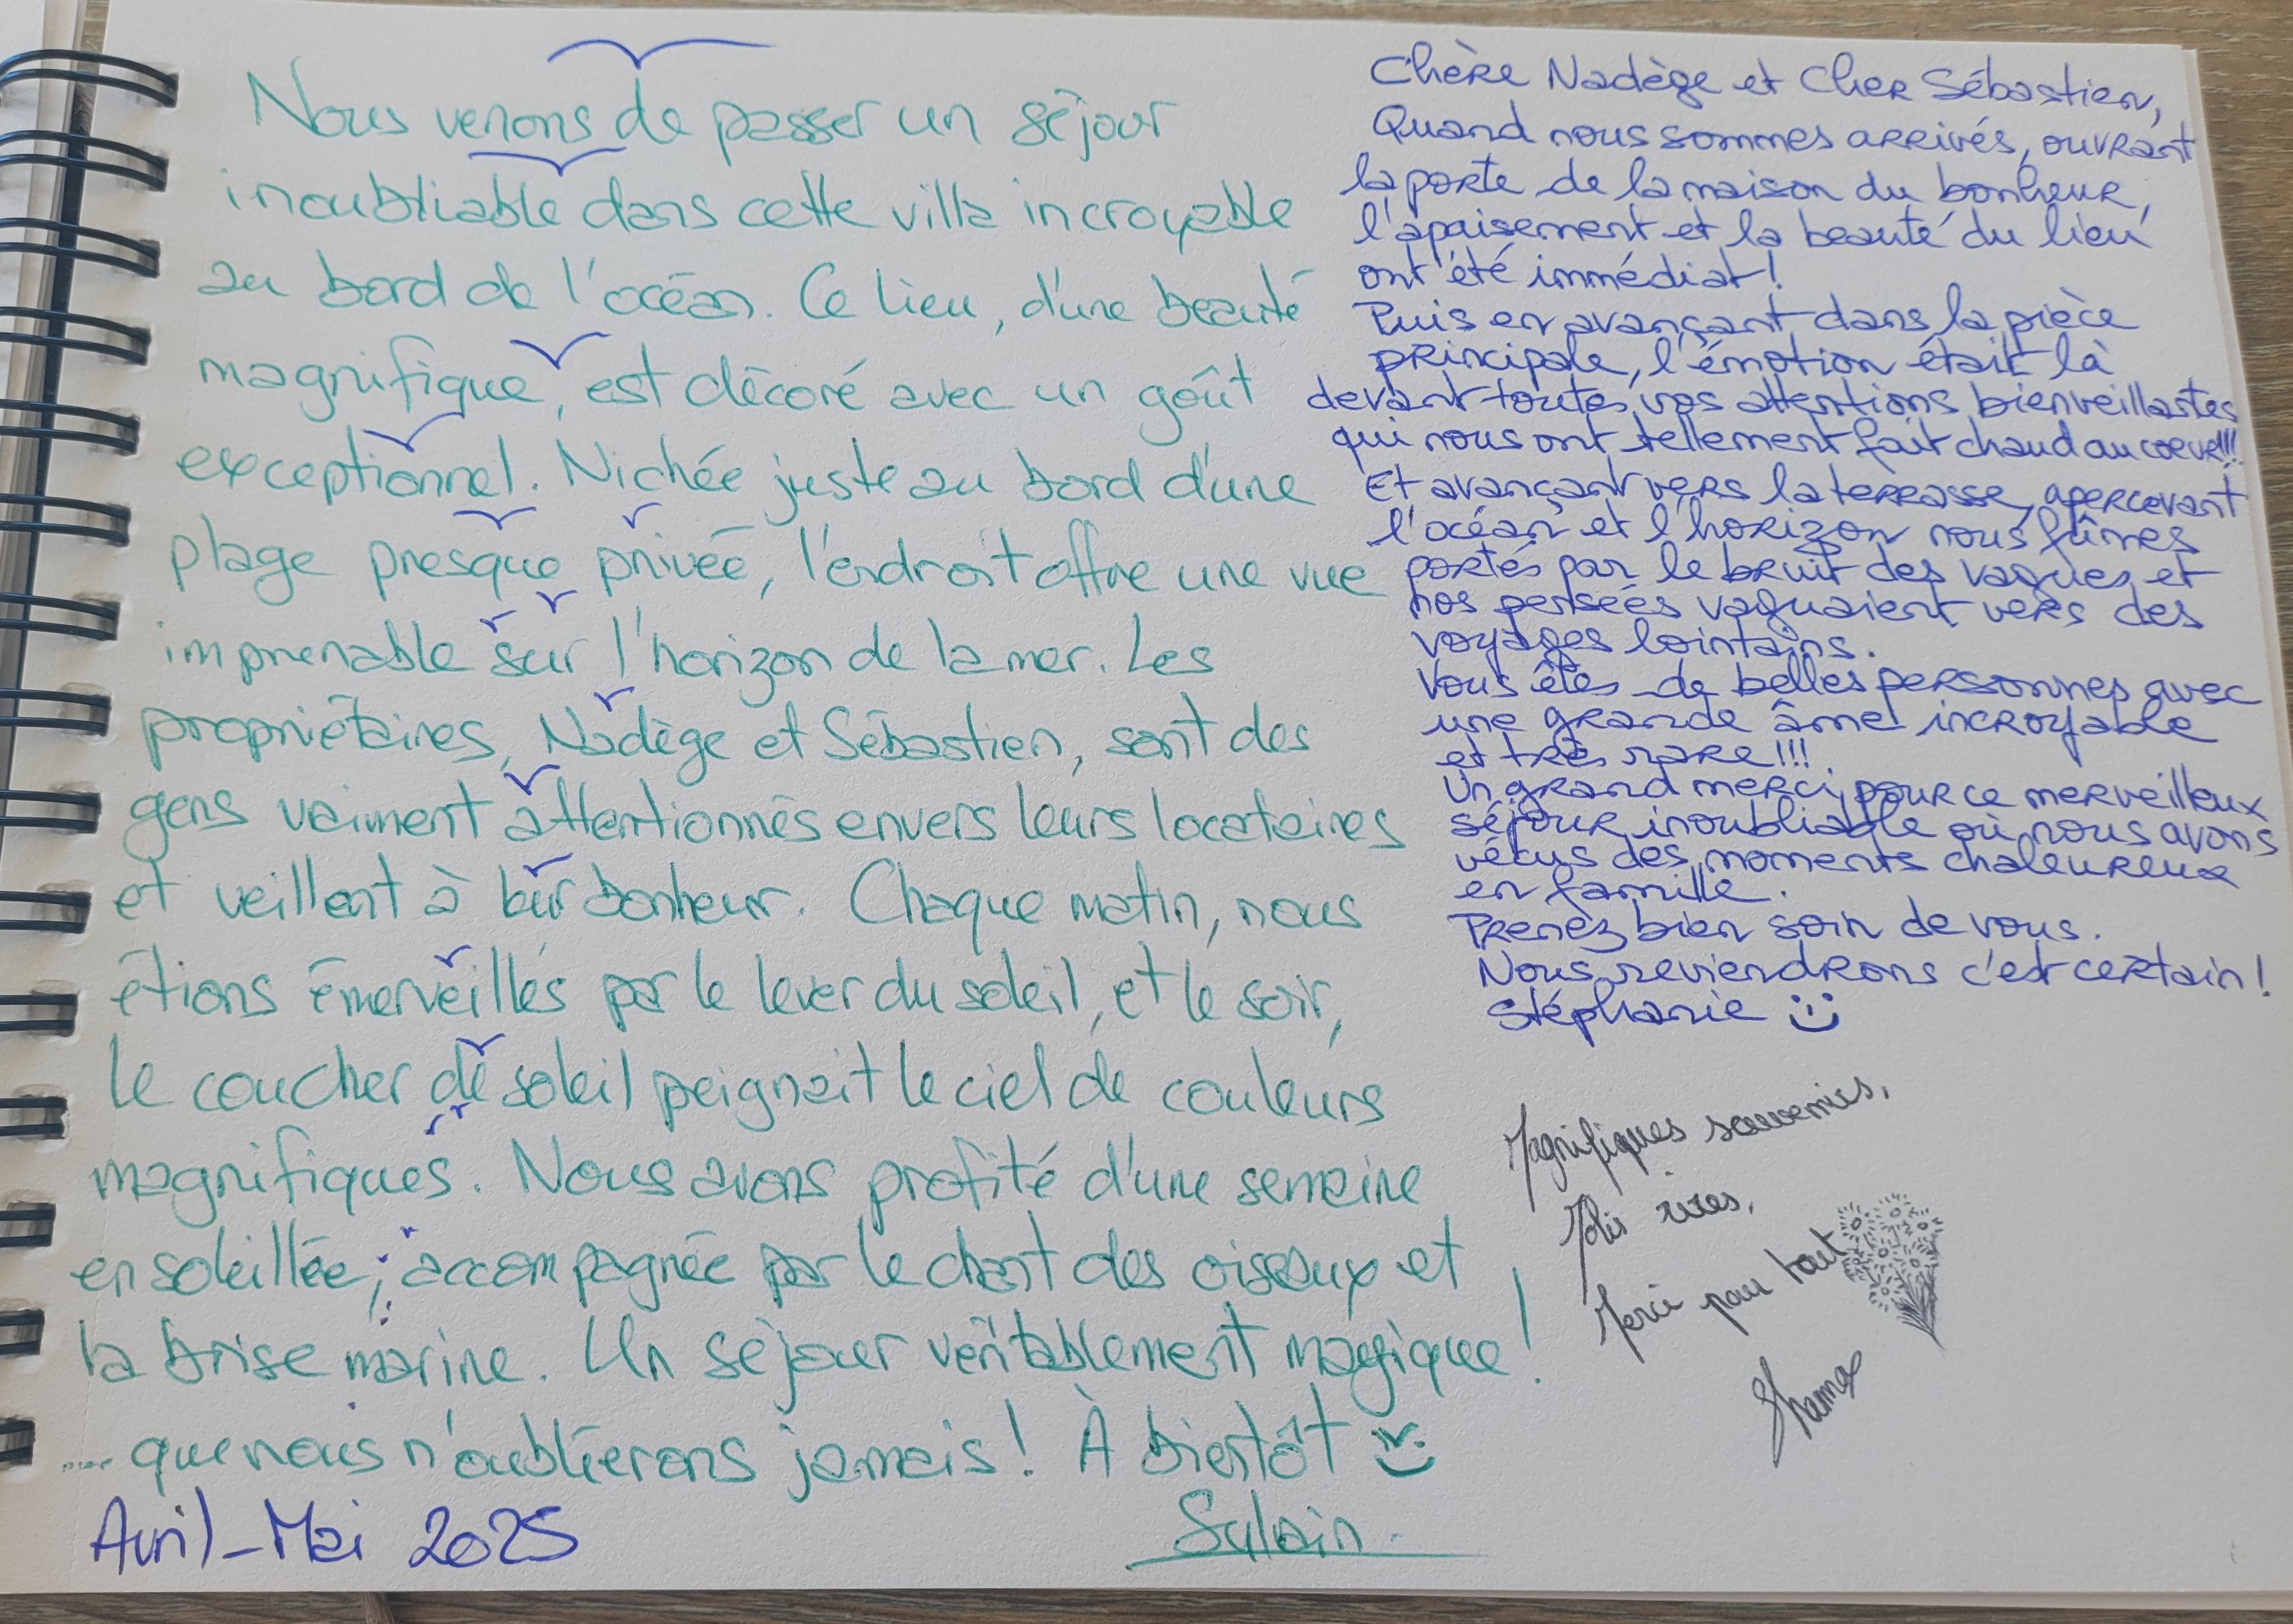 Nous venons de passer un séjour
inoubliable dans cette villa incroyable
au bord de l'océan. Ce lieu, d'une beauté
magnifique, est décoré avec un goût
exceptionnel. Nichée juste au bord d'une
plage presque privée, l'endroit offre une vue
imprenable sur l'horizon de la mer. Les
propriétaires, Nadège et Sébastien, sont des
gens vaiment attentionnés envers leurs locataires
et veillent à leur bonheur. Chaque matin, nous
étions émerveillés par le lever du soleil, et le soir,
le coucher de soleil peignait le ciel de couleurs
magnifiques. Nous avons profité d'une semaine
ensoleillée, accompagnée par le chant des oiseaux et
la brise marine. Un séjour véritablement magique !
.... que nous n'oublierons jamais ! À bientôt
Sylvain
Avril - Mai 2025
Chère Nadège et Cher Sébastien,
Quand nous sommes arrivés, ouvrant
la porte de la maison du bonheur,
l'apaisement et la beauté du lieu
ont été immédiat !
Puis en avançant dans la pièce
principale, l'émotion était là
devant toutes vos attentions bienveillantes
qui nous ont tellement fait chaud au coeur!!!
Et avançant vers la terrasse, apercevant
l'océan et l'horizon nous fûmes
portés par le bruit des vagues et
nos pensées vaguaient vers des
voyages lointains.
Vous êtes de belles personnes avec
une grande âme incroyable
et très rare!!!
Un grand merci pour ce merveilleux
séjour inoubliable où nous avons
vécus des moments chaleureux
en famille.
Prenez bien soin de vous.
Nous reviendrons c'est certain !
Stéphanie
Magnifiques souvenirs,
Jolis rires,
Merci pour tout